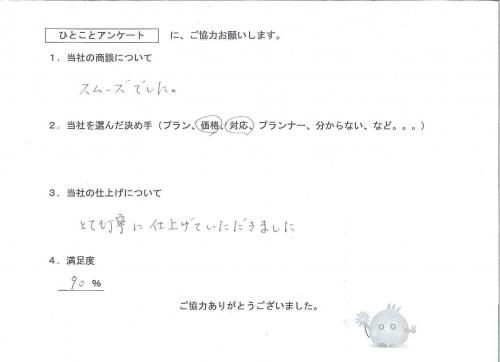 ひとことアンケート に、ご協力お願いします。
1．当社の商談について
スムーズでした。
2．当社を選んだ決め手（プラン、価格、対応、プランナー、分からない、など。。。）
3．当社の仕上げについて
とても丁寧に仕上げていただきました
4．満足度
90 %
ご協力ありがとうございました。